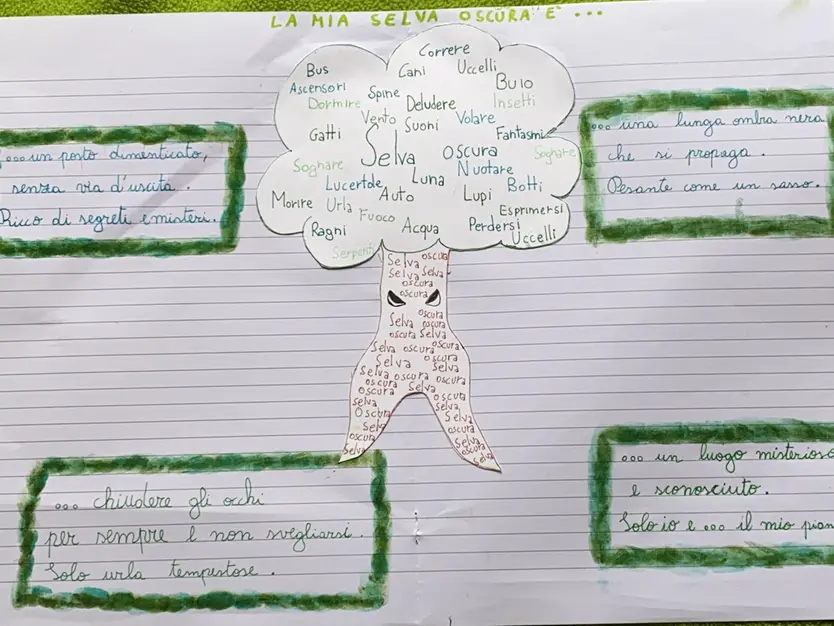 LA MIA SELVA OSCURA È ...
Correre
Bus
Cani
Uccelli
Ascensori
Spine
Buio
Dormire
Deludere
Insetti
Vento
Suoni
Volare
Gatti
Fantasmi
Selva
Oscura
Sognare
Sognare
Nuotare
Lucertole
Luna
Botti
Morire
Urla
Auto
Lupi
Fuoco
Esprimersi
Ragni
Acqua
Perdersi
Uccelli
Serpenti
...un posto dimenticato,
senza via d'uscita.
Ricco di segreti e misteri.
... una lunga ombra nera
che si propaga.
Pesante come un sasso.
Selva oscura
Selva Selva
oscura
oscura
oscura
Selva oscura
oscura Selva
Selva oscura oscura
Selva oscura
Selva Selva
oscura oscura
oscura
oscura Selva
Selva oscura
Selva
Oscura Selva
Selva oscura
oscura Selva
Selva oscura
Selva
... chiudere gli occhi
per sempre e non svegliarsi.
Solo urla tempestose.
... un luogo misterioso
e sconosciuto.
Solo io e ... il mio